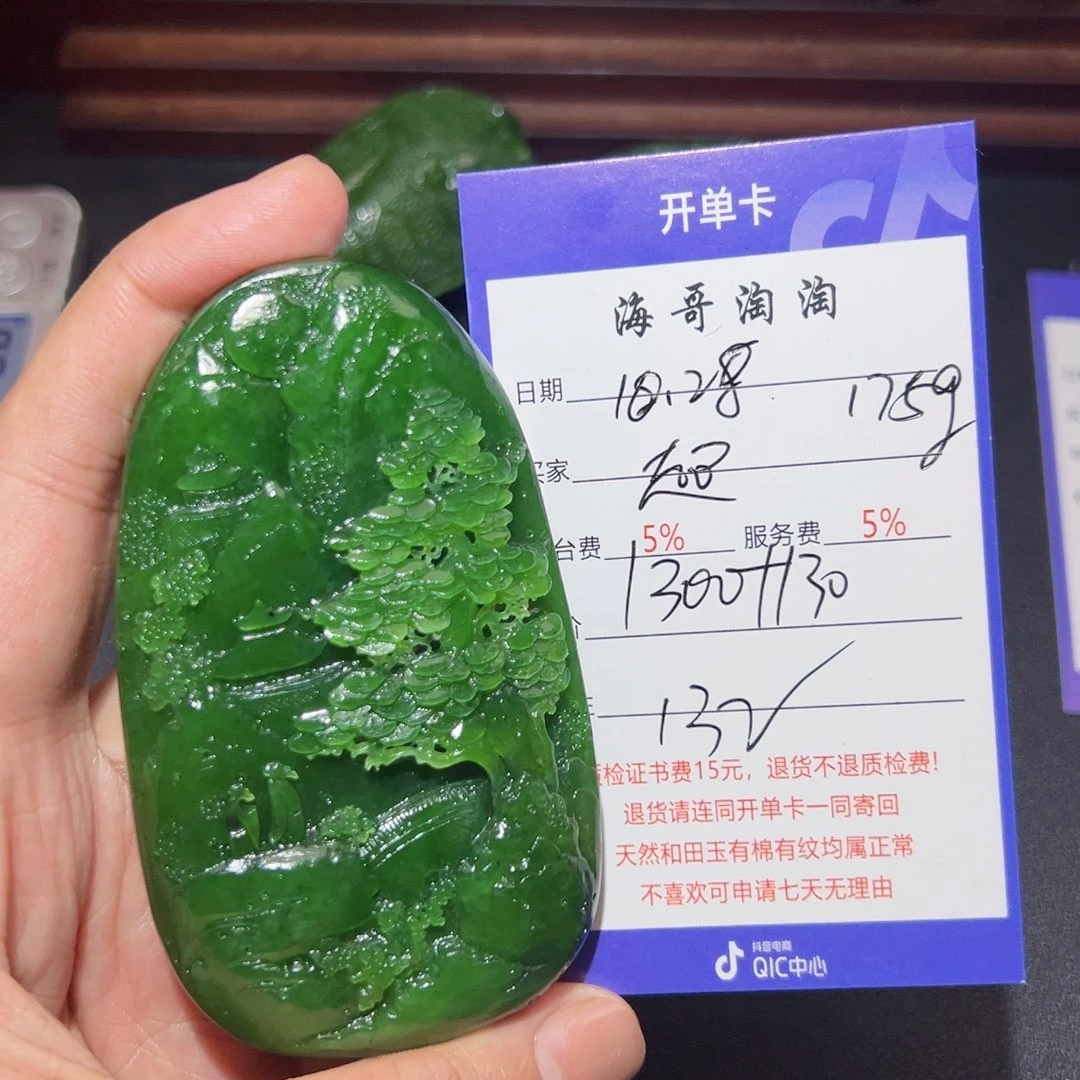 开单卡
海哥淘淘
日期 10.28 175g
家 超
台费 5% 服务费 5%
13000+1130
132
检证书费15元，退货不退质检费！
退货请连同开单卡一同寄回
天然和田玉有棉有纹均属正常
不喜欢可申请七天无理由
抖音电商
QIC中心